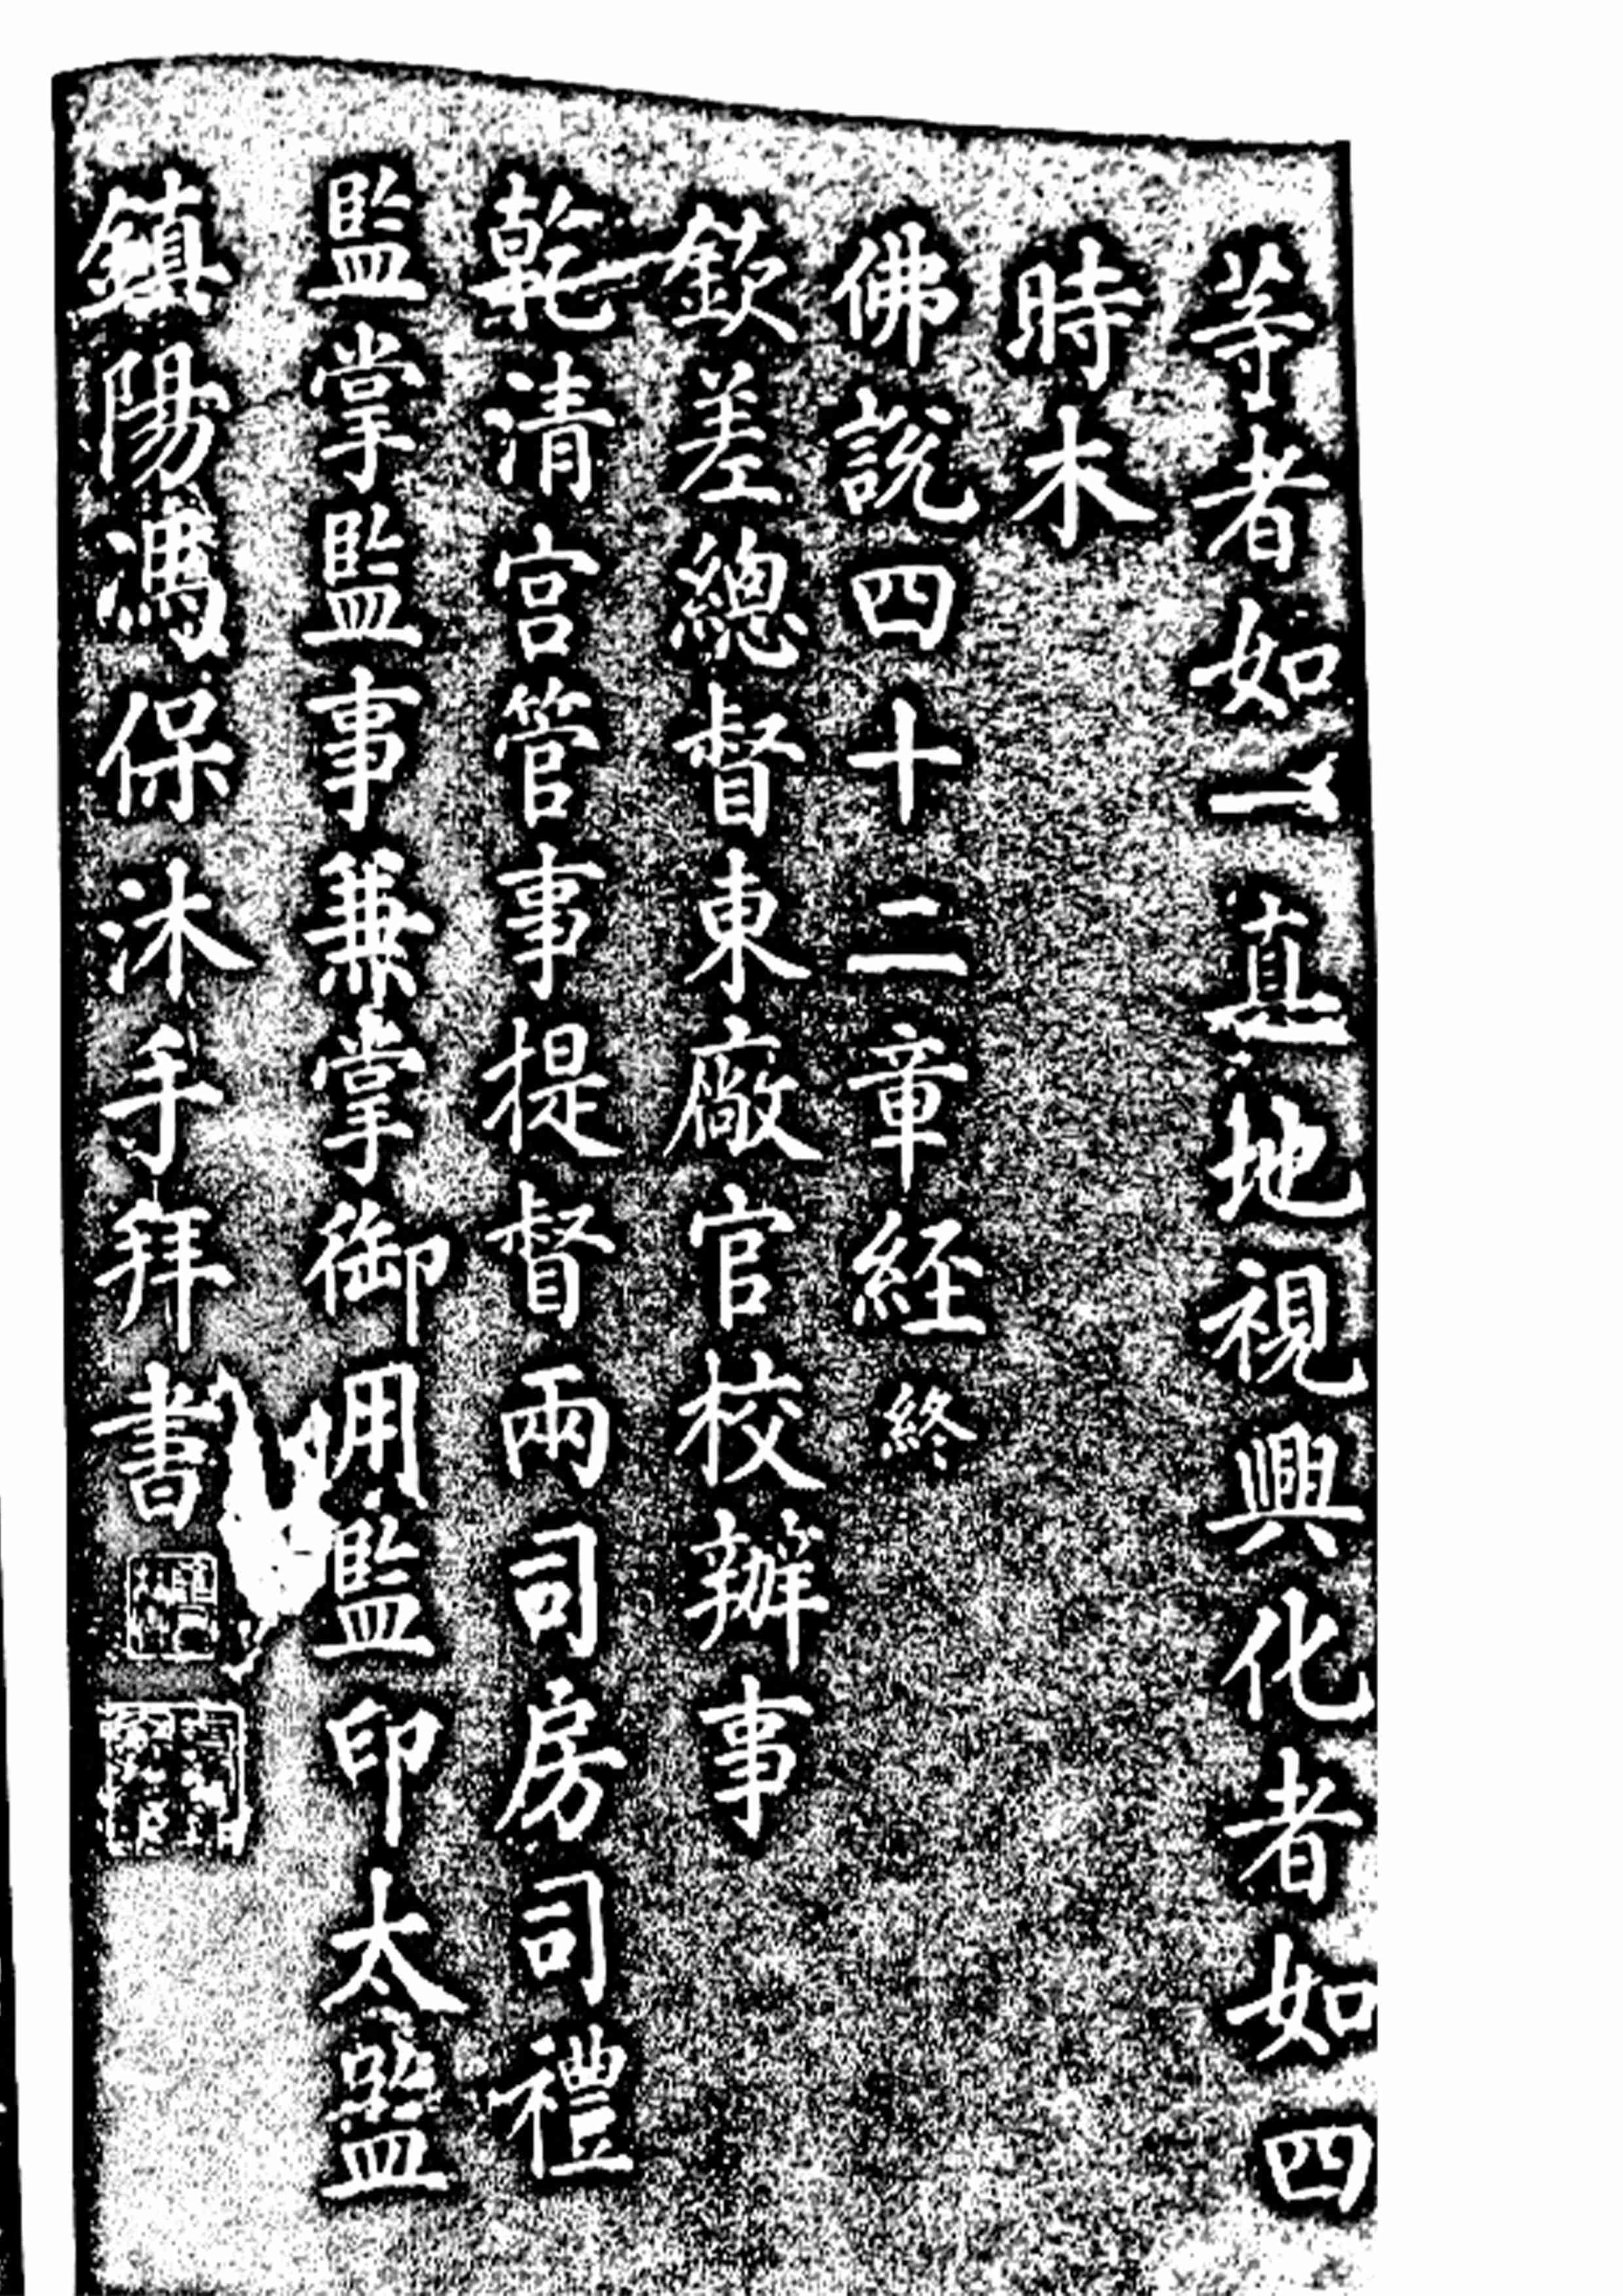 等者如一真地視興化者如四
時木
佛說四十二章経終
欽差總督東廠官校辦事
乾清宮管事提督兩司房司禮
監掌監事兼掌御用監印太監
鎮陽馮保沐手拜書